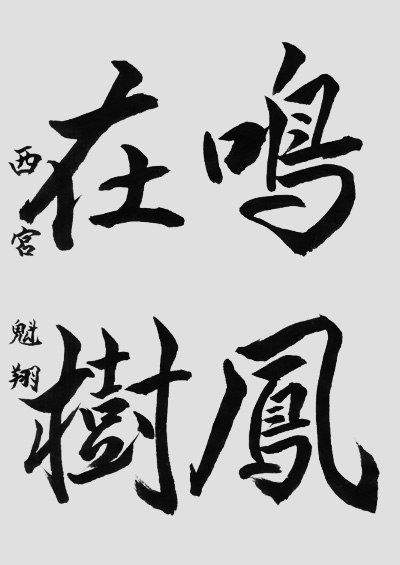 鳴鳳
在樹
西宮魁翔